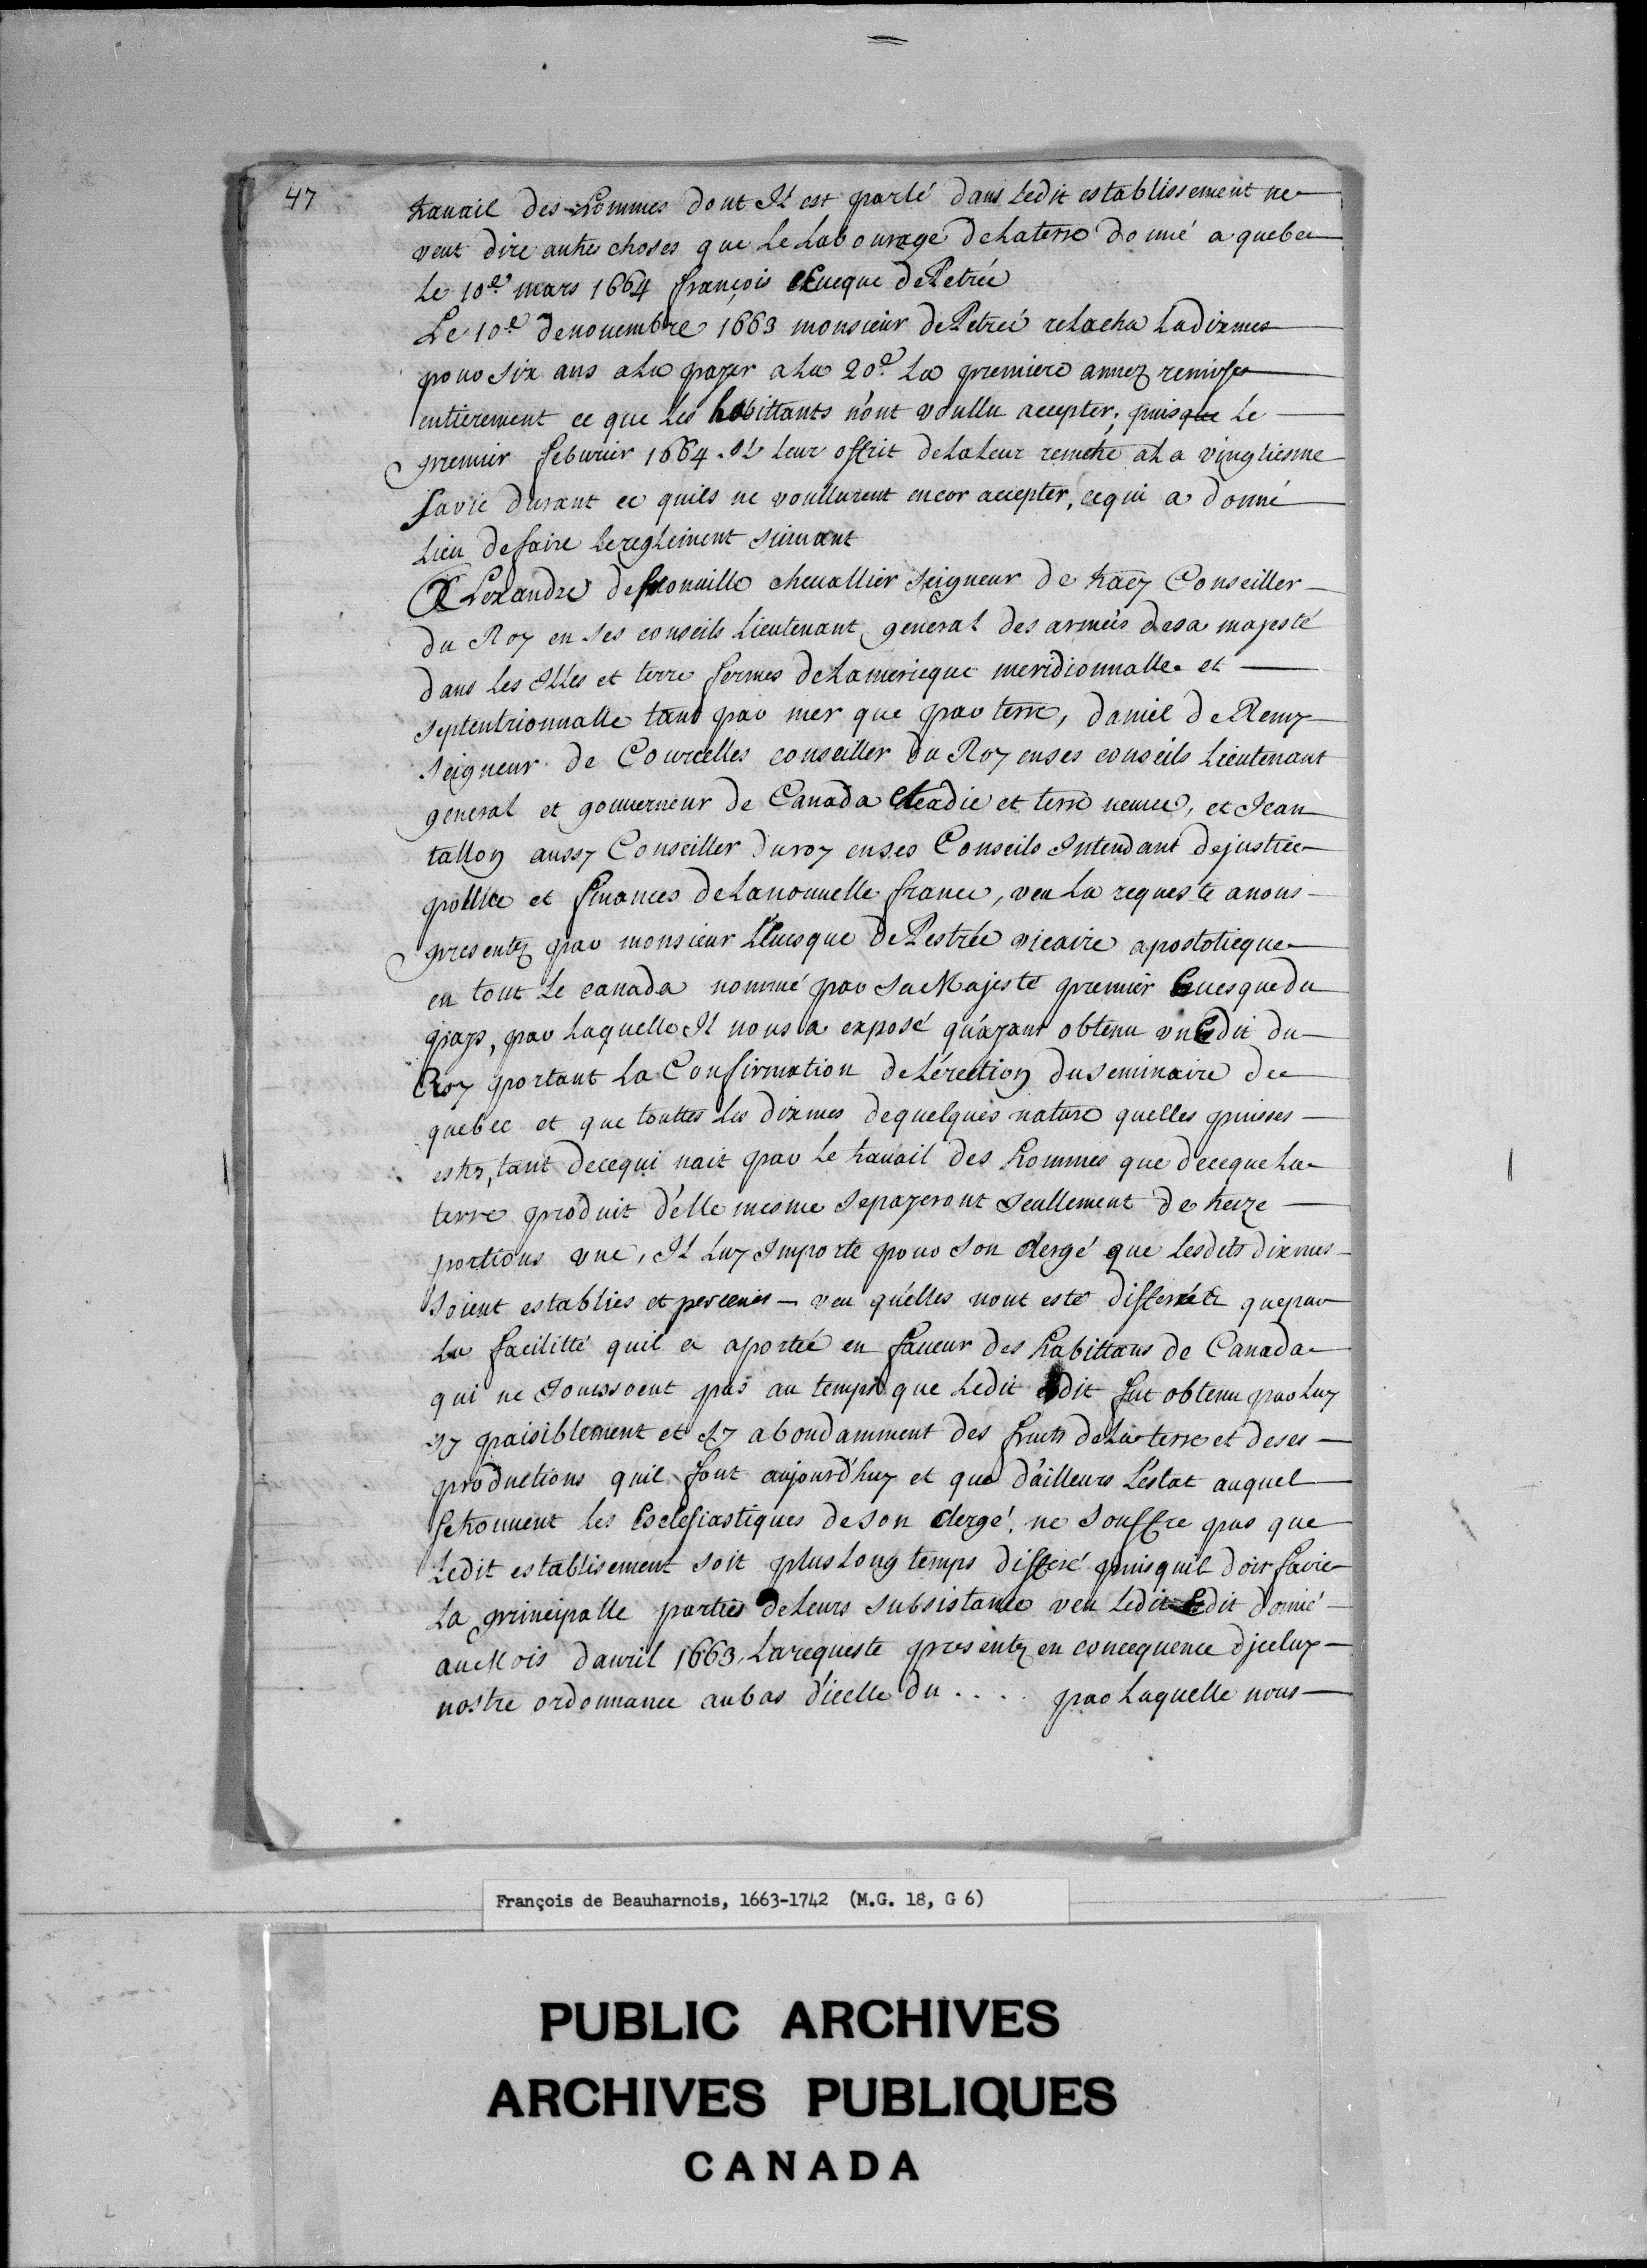 47
travail des hommes dont Il est parlé dans Ledit establissement ne
veut dire autres choses que Le Labourage de La terre donné a quebec
Le 10e mars 1664 françois Eveque de Petrée
Le 10e de novembre 1663 monsieur de Petreé relacha La dixmes
pour six ans a La payer a La 20e La premiere annez remise
entierement ce que Les habittants n'ont voullu accepter; puisque Le
premier feburier 1664. Il Leur offrit de La Leur remetre a La vingtiesme
sa vie durant ce quils ne voullurent encor accepter, ce qui a donné
Lieu de faire Le reglement suivant
ALexandre de prouville chevallier seigneur de tracy Conseiller
du Roy en ses conseils Lieutenant general des armeés de sa majesté
dans Les Illes et terre fermes de Lamericque meridionnalle et
septentrionnalle tant par mer que par terre, daniel de Remy
seigneur de Courcelles conseiller du Roy en ses conseils Lieutenant
general et gouverneur de Canada Acadie et terre neuve, et Jean
tallon aussy Conseiller du roy en ses Conseils Intendant de justice
pollice et finances de La nouvelle france, veu La requeste a nous
presentez par monsieur L'Evesque de Pestrée vicaire apostolicque
en tout Le canada nommé par Sa Majesté premier Evesque du
pays, par Laquelle Il nous a exposé qu'ayant obtenu un Edit du
Roy portant La Confirmation de L'érection du seminaire de
quebec et que touttes Les dixmes de quelques nature quelles puisses
estre, tant de ce qui nait par Le travail des hommes que de ce que La
terre produit d'elle mesme se payeront seullement de treize
portions une, Il Luy Importe pour son clergé que Lesdits dixmes
soient establies et percenës veu quélles nont esté differéés que par
La facilitté quil a aportée en faveur des habittans de Canada
qui ne Jouissoent pas au temps que Ledit Edit fut obtenu par Luy
sy paisiblement et sy abondamment des fruits de La terre et de ses
productions quil font aujourd'huy et que d'ailleurs L'estat auquel
se trouvent les Esclesiastiques de son clergé, ne souffre pas que
Ledit establisement soit plus Long temps differé puisquil doit faire
La principalle parties de Leurs subsistance veu Ledit Edit donné
au Mois d'avril 1663, La requeste presentez en concequence d'jceluy
nostre ordonnance au bas d'icelle du . . . . par Laquelle nous
François de Beauharnois, 1663-1742 (M.G. 18, G 6)
PUBLIC ARCHIVES
ARCHIVES PUBLIQUES
CANADA